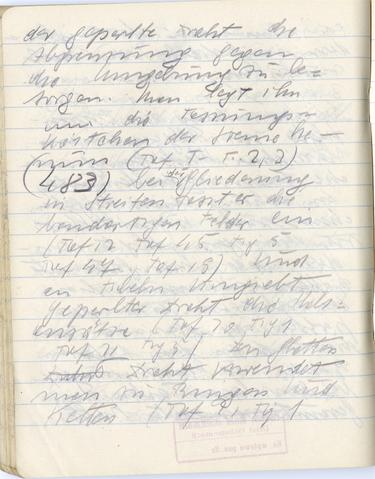 der geperlte Draht die
Abgrenzung gegen
die Umgebung zu be-
sorgen. Man legt ihn
um die Fassungs-
kästchen der Steine he-
rum (Taf I - F. 2, 3)
(483) bei der Gliederung
in Streifen fasst er die
bandartigen Felder ein
(Taf 12 Taf 45 Fig 5
Taf 47, Taf 19) Und
an Fibeln umgiebt
geperlter Draht die Hals-
ansätze (Taf 20 Fig 1
Taf 21 Fig 3) Den glatten
Draht verwendet
man zu Ringen und
Ketten (Taf 21 Fig 1